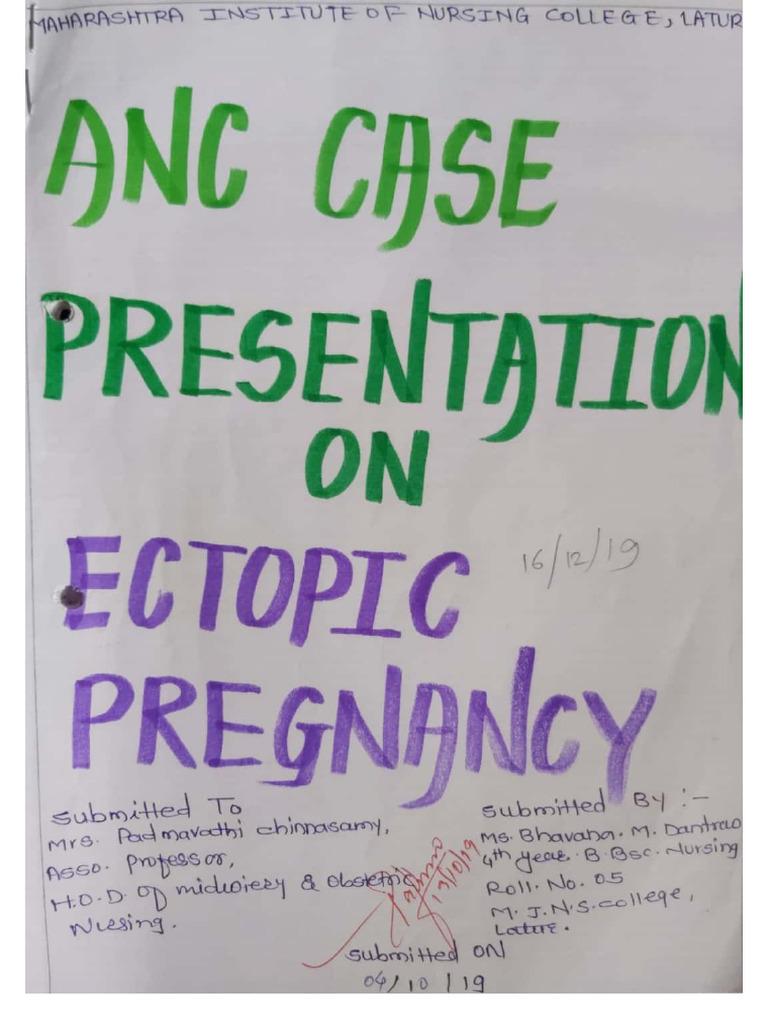 MAHARASHTRA INSTITUTE OF NURSING COLLEGE, LATUR
ANC CASE
PRESENTATION
ON
ECTOPIC
16/12/19
PREGNANCY
Submitted To
Mrs. Padmavathi chinnasamy,
Asso. Professor,
H.O.D. of midwiezy & obstetric
Nursing.
Submitted By :-
Ms. Bhavana. M. Dantrao
4th year. B. Bsc. Nursing
Roll. No. 05
M. I. N. S. college,
Latur.
13/10/19
submitted ON
04/10/19